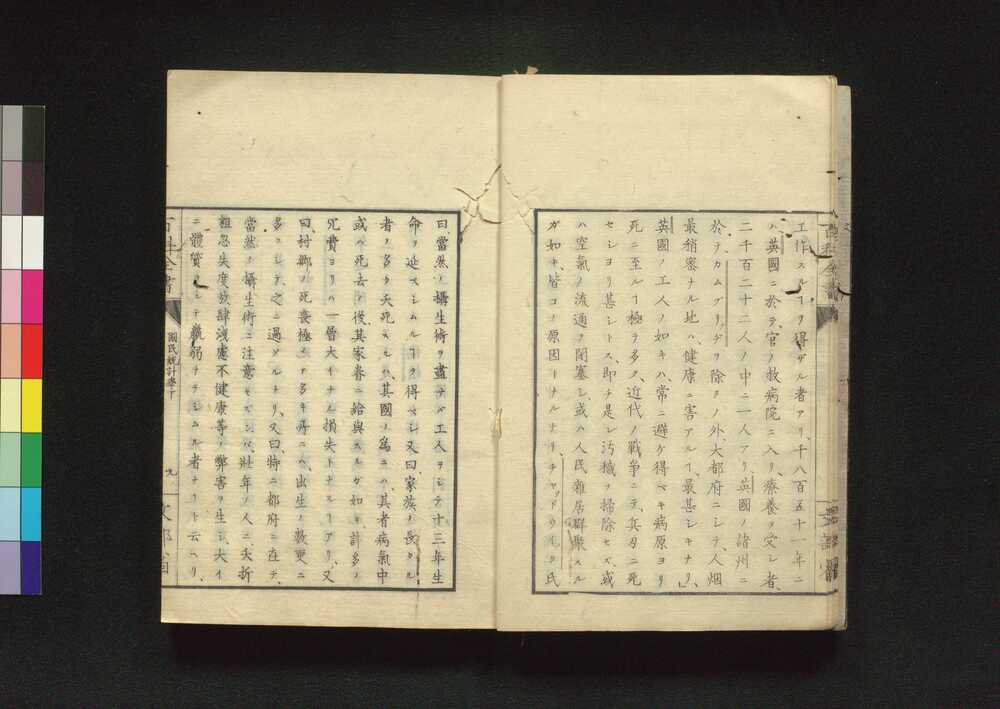 工作スルヿヲ得ザル者アリ、千八百五十一年ニ
ハ英國ニ於テ、官ノ救病院ニ入リ、療養ヲ受シ者、
二千百二十二人ノ中ニ一人アリ、英國ノ諸州ニ
於テ、カムブリッヂヲ除クノ外、大都府ニシテ、人烟
最稍密ナル地ハ、健康ニ害アルヿ、最甚シキナリ、
英國ノ工人ノ如キハ、常ニ避ケ得ベキ病原ヨリ
死ニ至ルヿ極テ多ク、近代ノ戰爭ニテ、兵刃ニ死
セシヨリ甚シトス、即チ是レ汚穢ヲ掃除セズ、或
ハ空氣ノ流通ヲ閉塞シ、或ハ人民雜居群聚スル
ガ如キ、皆コノ原因トナルナリ、チャッドウイク氏
曰、當然ノ攝生術ヲ盡サバ、工人ヲシテ十三年生
命ヲ延ベシムルヿヲ得ベシ、又曰、家族ノ長タル
者ノ多ク夭死スルハ、其國ノ爲ニハ、其者病氣中
或ハ死去ノ後、其家眷ニ給與スルガ如キ許多ノ
冗費ヨリハ、一層大イナル損失トナルヿアリ、又
曰、村鄉ノ死喪極メテ多キ毎ニハ、出生ノ數更ニ
多クシテ、之ニ過グルナリ、又曰、特ニ都府ニ在テ、
當然ノ攝生術ニ注意セザレバ、壯年ノ人ニ、夭折
粗忽失度放肆淺慮不健康等ノ弊害ヲ生シ、大イ
ニ體質ヲシテ羸弱ナラシムル者ナリト云ヘリ、
百科全書
國民統計學下
九
文部省